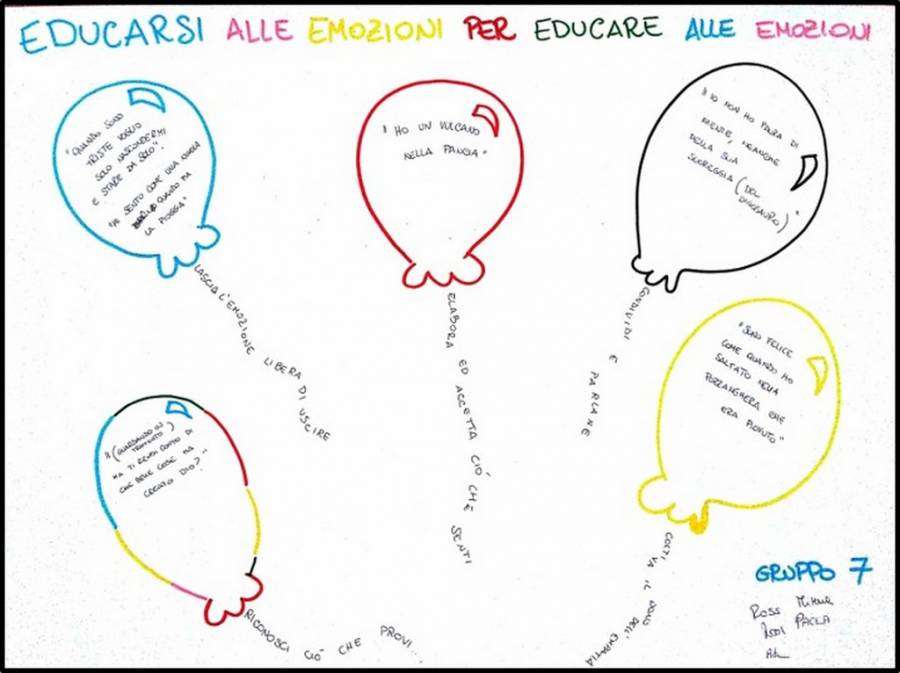 EDUCARSI ALLE EMOZIONI PER EDUCARE ALLE EMOZIONI
"QUANDO SONO
TRISTE VOGLIO
SOLO NASCONDERMI
E STARE DA SOLO".
"MI SENTO COME UNA NUVOLA
QUANDO FA
LA PIOGGIA"
LASCIA L'EMOZIONE LIBERA DI USCIRE
"HO UN VULCANO
NELLA PANCIA"
ELABORA ED ACCETTA CIÒ CHE SENTI
"IO NON HO PAURA DI
NIENTE, NEANCHE
DELLA SUA
SCOREGGIA (DEL
DINOSAURO)"
CONDIVIDI E PARLANE
"(GUARDANDO UN
TRAMONTO)
MA TI RENDI CONTO DI
CHE BELLE COSE HA
CREATO DIO?"
RICONOSCI CIÒ CHE PROVI...
"SONO FELICE
COME QUANDO HO
SALTATO NELLA
POZZANGHERA CHE
ERA PIOVUTO"
COLTIVA IL DONO DELL'EMPATIA
GRUPPO 7
PAOLA